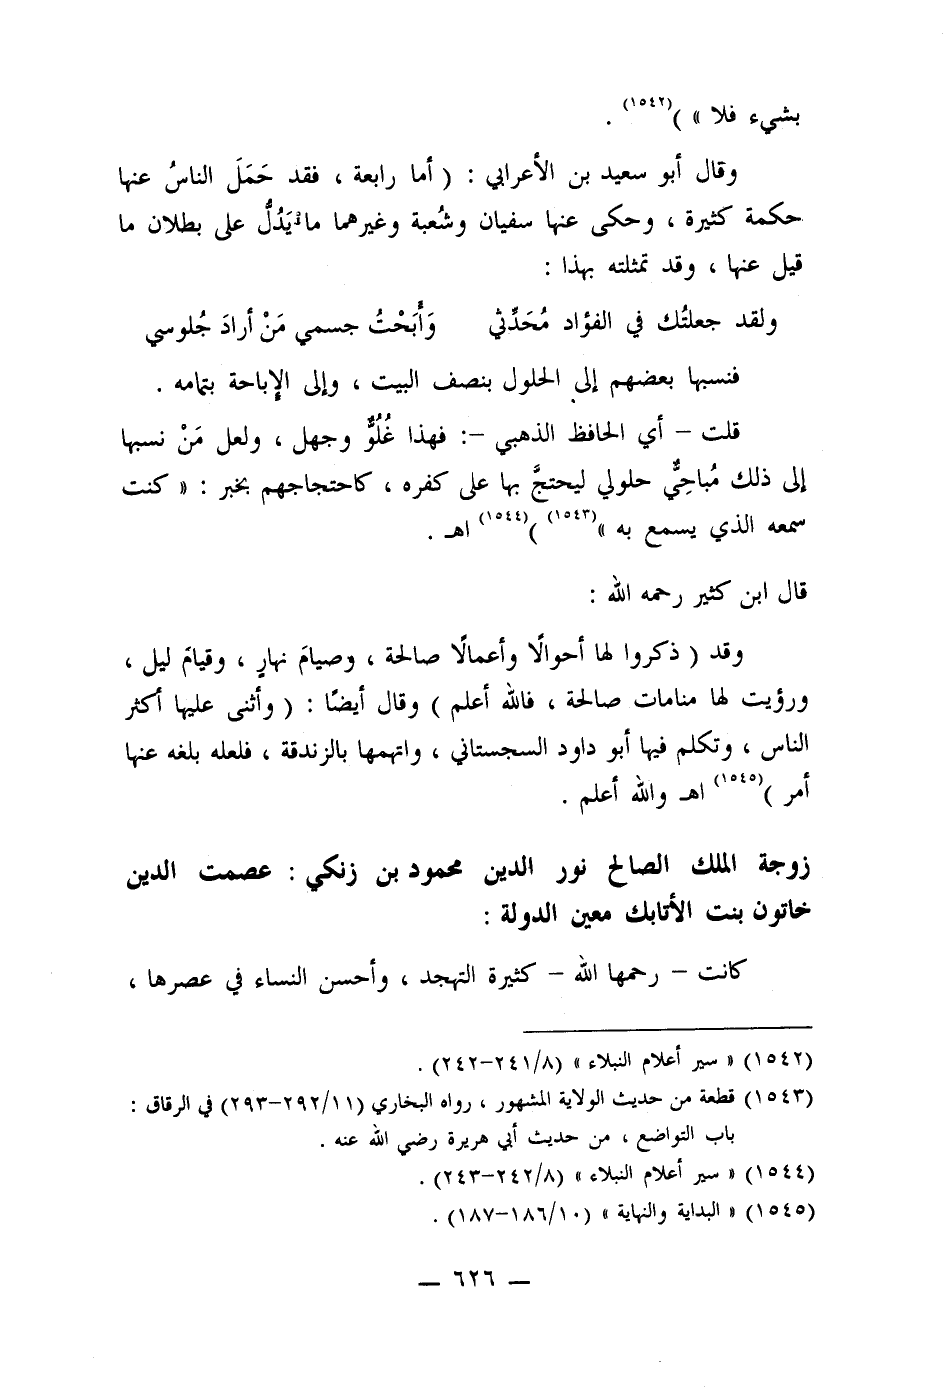 بشيء فلا » )(١٥٤٢) .
وقال أبو سعيد بن الأعرابي : ( أما رابعة ، فقد حَمَلَ الناسُ عنها
حكمة كثيرة ، وحكى عنها سفيان وشُعبة وغيرهما ما يَدُلُّ على بطلان ما
قيل عنها ، وقد تمثلته بهذا :
ولقد جعلتُك في الفؤاد مُحَدِّثي وَأَبَحْتُ جسمي مَنْ أرادَ جُلوسي
فنسبها بعضهم إلى الحلول بنصف البيت ، وإلى الإباحة بتمامه .
قلت – أي الحافظ الذهبي –: فهذا غُلُوٌّ وجهل ، ولعل مَنْ نسبها
إلى ذلك مُباحِيٌّ حلولي ليحتجَّ بها على كفره ، كاحتجاجهم بخبر : « كنت
سمعه الذي يسمع به »(١٥٤٣) )(١٥٤٤) اهـ .
قال ابن كثير رحمه الله :
وقد ( ذكروا لها أحوالًا وأعمالًا صالحة ، وصيامَ نهارٍ ، وقيامَ ليل ،
ورؤيت لها منامات صالحة ، فالله أعلم ) وقال أيضًا : ( وأثنى عليها أكثر
الناس ، وتكلم فيها أبو داود السجستاني ، واتهمها بالزندقة ، فلعله بلغه عنها
أمر )(١٥٤٥) اهـ والله أعلم .
زوجة الملك الصالح نور الدين محمود بن زنكي : عصمت الدين
خاتون بنت الأتابك معين الدولة :
كانت – رحمها الله – كثيرة التهجد ، وأحسن النساء في عصرها ،
(١٥٤٢) « سير أعلام النبلاء » (٢٤١/٨–٢٤٢) .
(١٥٤٣) قطعة من حديث الولاية المشهور ، رواه البخاري (٢٩٢/١١–٢٩٣) في الرقاق :
باب التواضع ، من حديث أبي هريرة رضي الله عنه .
(١٥٤٤) « سير أعلام النبلاء » (٢٤٢/٨–٢٤٣) .
(١٥٤٥) « البداية والنهاية » (١٨٦/١٠–١٨٧) .
— ٦٢٦ —